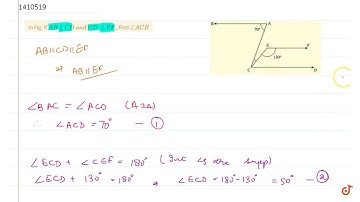 1410519
In Fig. if AB || CD and CD || EF, Find ∠ACE.
B A
70°
E F
130°
C D
AB||CD||EF
⇒ AB||EF
∠BAC = ∠ACD (AIA)
∴ ∠ACD = 70° — ①
∠ECD + ∠CEF = 180° (Int ∠s are supp)
∠ECD + 130° = 180° ⇒ ∠ECD = 180°-130° = 50° — ②